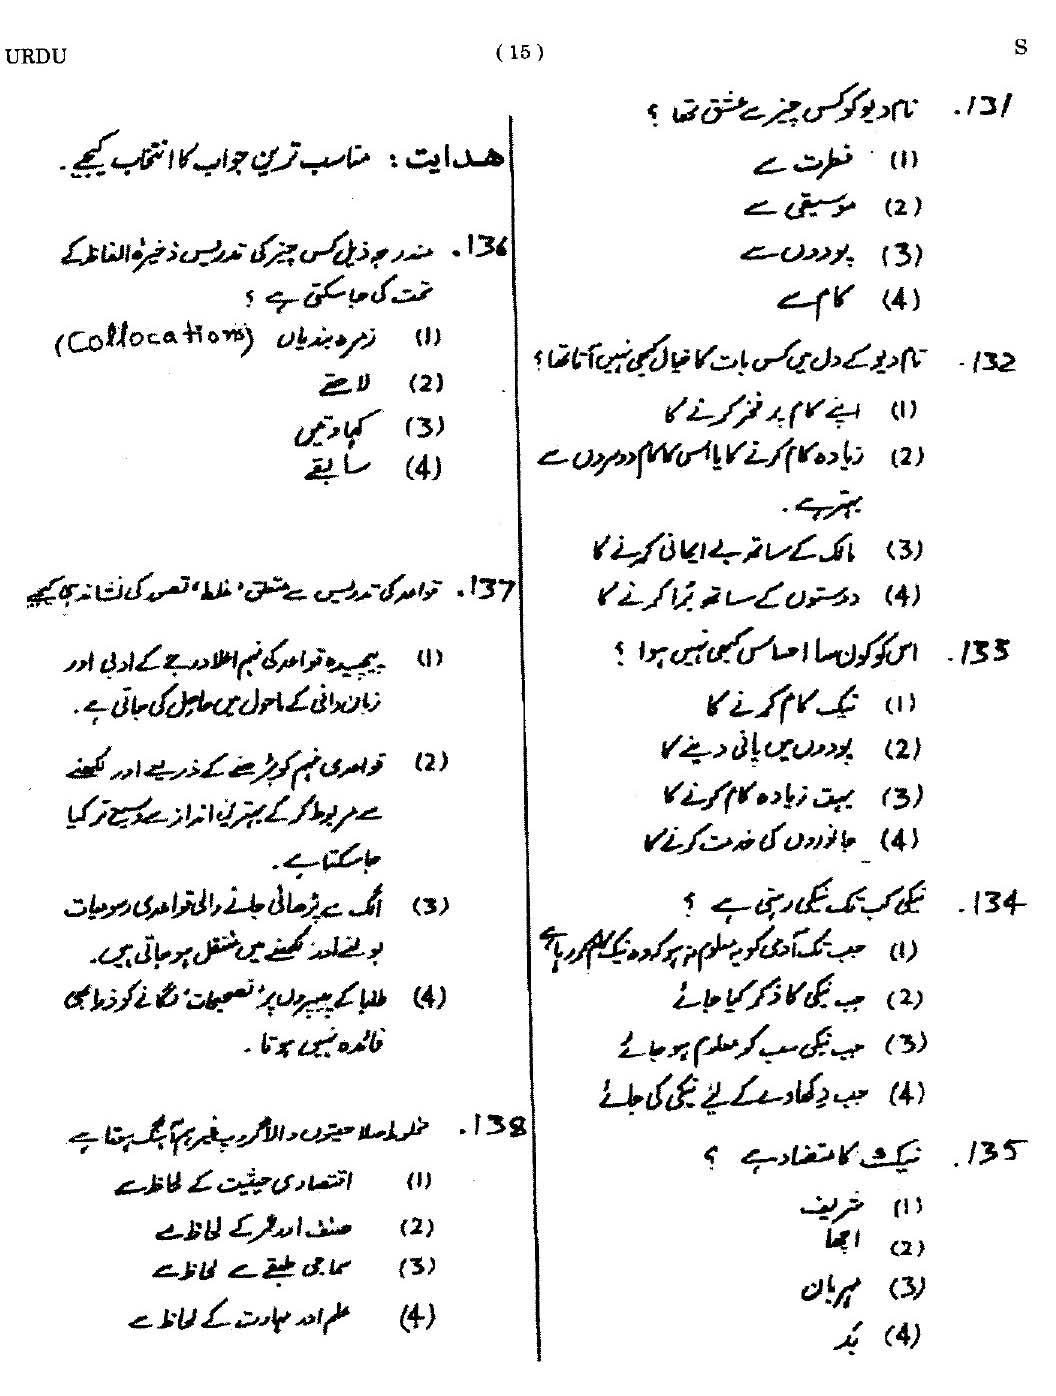 URDU
( 15 )
S
131. نام دیو کو کس چیز سے عشق تھا ؟
(1) فطرت سے
(2) موسیقی سے
(3) پودوں سے
(4) کام سے
132. نام دیو کے دل میں کس بات کا خیال کبھی نہیں آتا تھا ؟
(1) اپنے کام پر فخر کرنے کا
(2) زیادہ کام کرنے کا یا اس کا کام دوسروں سے
بہتر ہے ۔
(3) مالک کے ساتھ بے ایمانی کرنے کا
(4) دوستوں کے ساتھ بُرا کرنے کا
133. اس کو کون سا احساس کبھی نہیں ہوا ؟
(1) نیک کام کرنے کا
(2) پودوں میں پانی دینے کا
(3) بہت زیادہ کام کرنے کا
(4) جانوروں کی خدمت کرنے کا
134. نیکی کب تک نیکی رہتی ہے ؟
(1) جب تک آدمی کو یہ معلوم نہ ہو کہ وہ نیک کام کر رہا ہے
(2) جب نیکی کا ذکر کیا جائے
(3) جب نیکی سب کو معلوم ہو جائے
(4) جب دکھاوے کے لیے نیکی کی جائے
135. نیک کا متضاد ہے ؟
(1) شریف
(2) اچھا
(3) مہربان
(4) بَد
ہدایت : مناسب ترین جواب کا انتخاب کیجیے ۔
136. مندرجہ ذیل کس چیز کی تدریس ذخیرۂ الفاظ کے
تحت کی جا سکتی ہے ؟
(1) زمرہ بندیاں (Collocations)
(2) لاحقے
(3) کہاوتیں
(4) سابقے
137. قواعد کی تدریس سے متعلق 'غلط' تصور کی نشاندہی کیجیے
(1) پیچیدہ قواعد کی فہم اعلا درجے کے ادبی اور
زبان دانی کے ماحول میں حاصل کی جاتی ہے ۔
(2) قواعدی فہم کو پڑھنے کے ذریعے اور لکھنے
سے مربوط کر کے بہترین انداز سے وسیع تر کیا
جا سکتا ہے ۔
(3) الگ سے پڑھائی جانے والی قواعدی رسومیات
بولنے اور لکھنے میں منتقل ہو جاتی ہیں ۔
(4) طلبا کے پیپروں پر 'تصحیحات' لگانے کو ذرا بھی
فائدہ نہیں ہوتا ۔
138. مخلوط صلاحیتوں والا گروپ غیر ہم آہنگ ہوتا ہے
(1) اقتصادی حیثیت کے لحاظ سے
(2) صنف اور عمر کے لحاظ سے
(3) سماجی طبقے سے لحاظ سے
(4) علم اور مہارت کے لحاظ سے